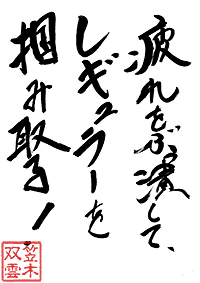 疲れをぶっ潰して、
レギュラーを
掴み取る！
笠木
双雲